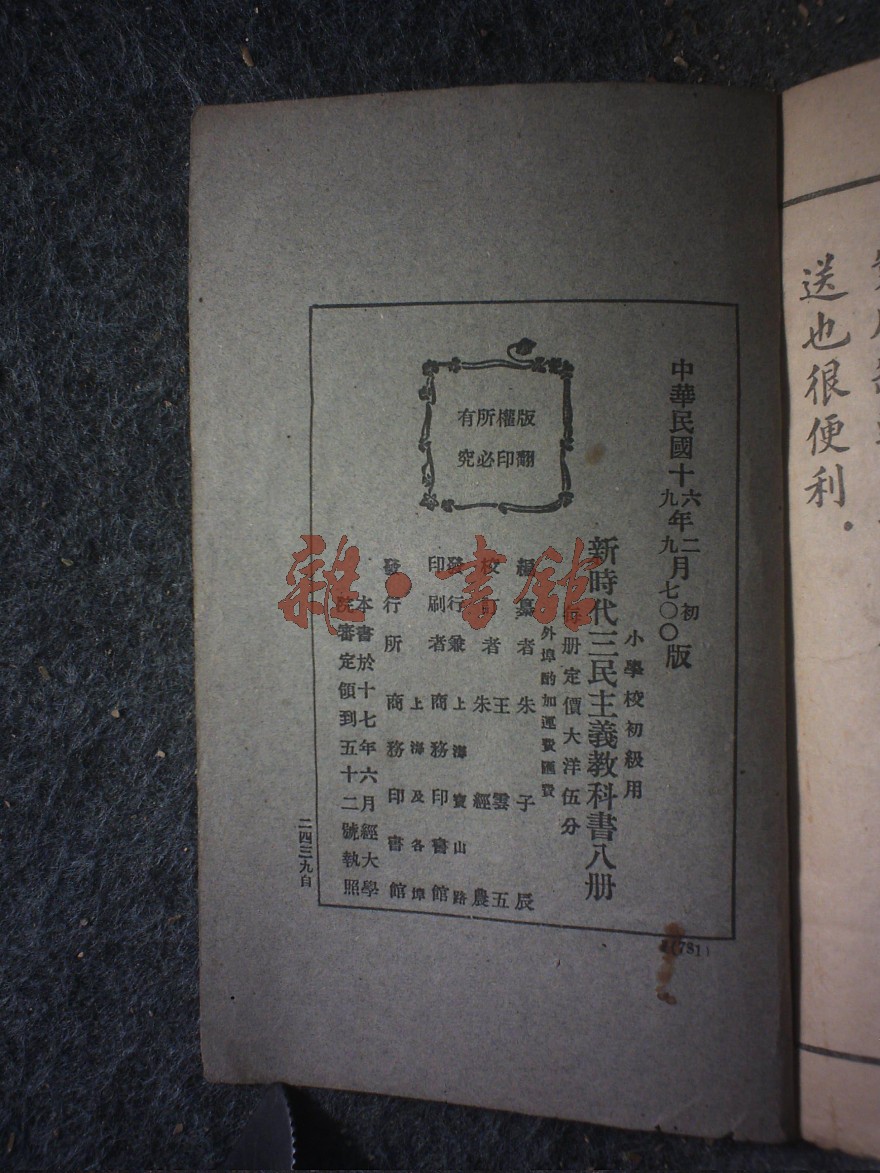 送也很便利．
中華民國十六年二月初版
九九七〇〇
小學校初級用
新時代三民主義教科書八册
每册定價大洋伍分
外埠酌加運費匯費
編纂者 朱子辰
王雲五
校訂者 朱經農
發行兼 上海寶山路
印刷者 商務印書館
上海及各埠
發行所 商務印書館
本書於十七年六月經大學
院審定領到五十二號執照
版權所有
翻印必究
二四三九自
(781)
雜·書館